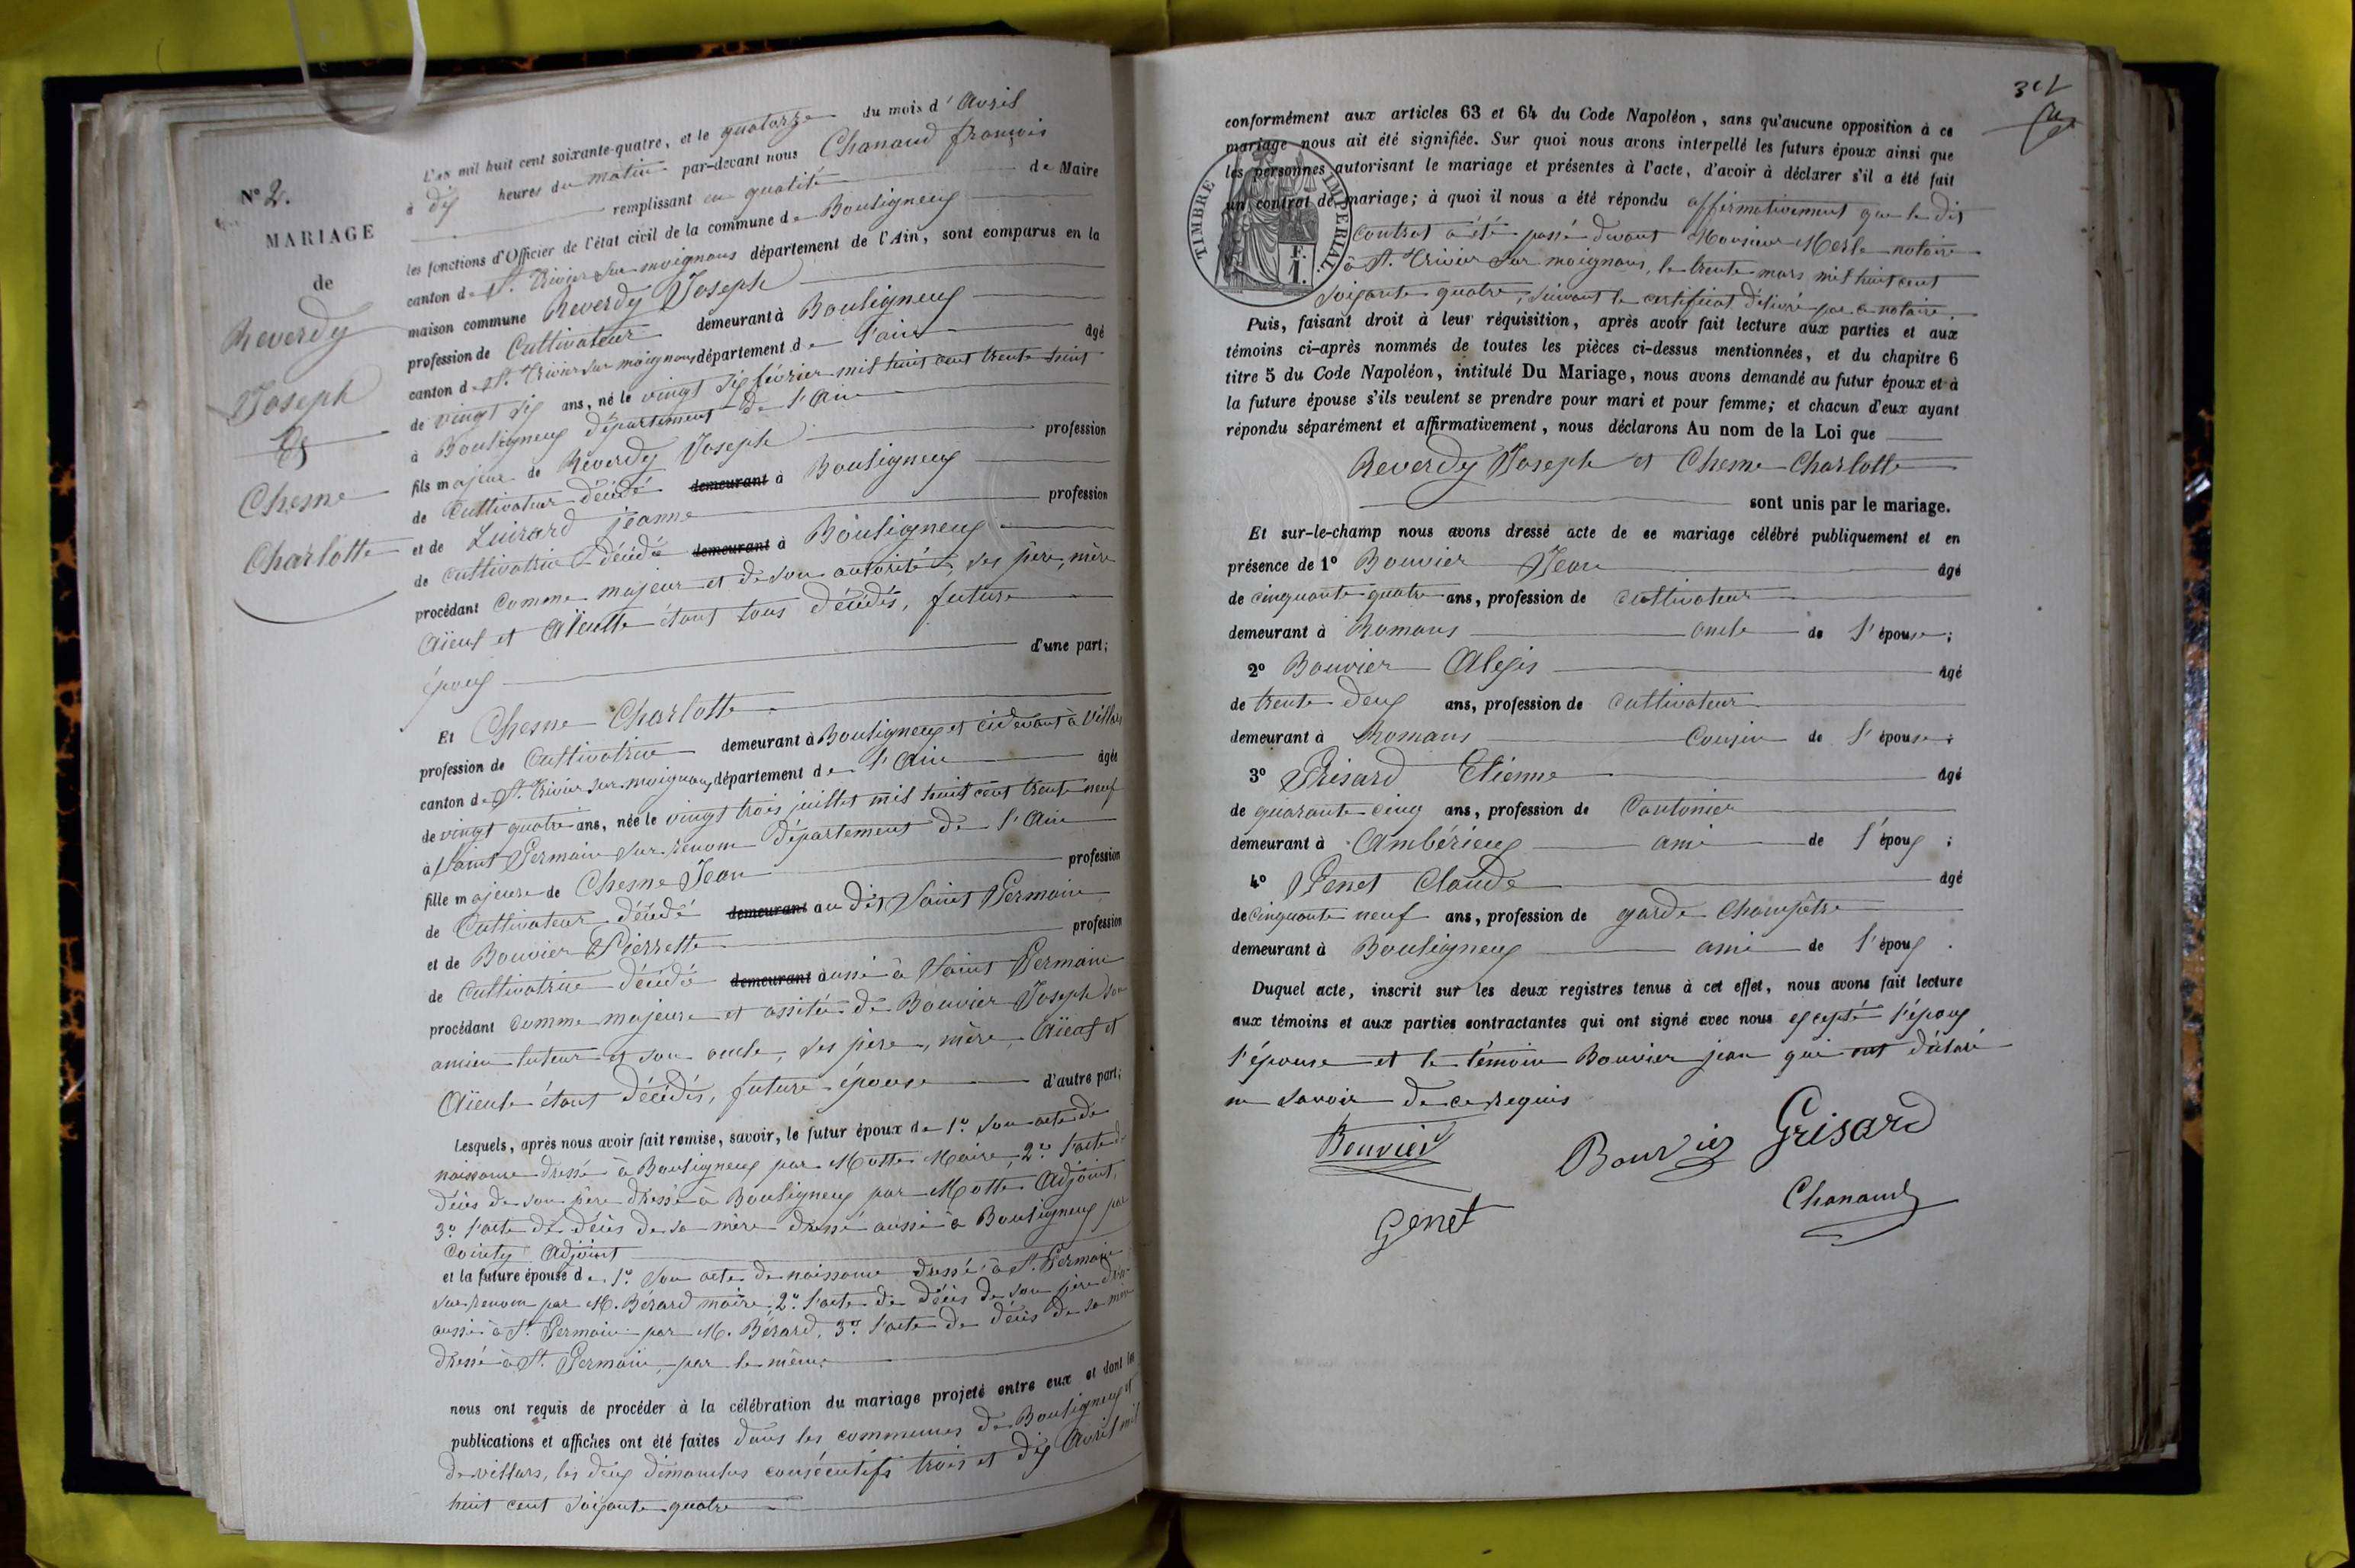 N° 2.
MARIAGE
de
Reverdy
Joseph
Et
Chesne
Charlotte
L'an mil huit cent soixante-quatre, et le quatorze du mois d'Avril
à dix heures du matin par-devant nous Chanaud françois
remplissant en qualité de Maire
les fonctions d'Officier de l'état civil de la commune de Bouligneux
canton de St. Trivier sur moignans département de l'Ain, sont comparus en la
maison commune Reverdy Joseph
profession de Cultivateur demeurant à Bouligneux
canton de St. Trivier sur moignans département de l'ain âgé
de vingt six ans, né le vingt six février mil huit cent trente huit
à Bouligneux département de l'Ain
fils majeur de Reverdy Joseph profession
de Cultivateur décédé demeurant à Bouligneux
et de Luirard jeanne profession
de cultivatrice décédée demeurant à Bouligneux
procédant comme majeur et de son autorité, ses père, mère
Aïeuf et Aïeulle étant tous décédés, future
époux d'une part;
Et Chesne Charlotte
profession de Cultivatrice demeurant à Bouligneux et cidevant à Villars
canton de St. Trivier sur moignans département de l'Ain âgée
de vingt quatre ans, née le vingt trois juillet mil huit cent trente neuf
à Saint Germain sur renom département de l'Ain
fille majeure de Chesne Jean profession
de Cultivateur décédé demeurant au dit Saint Germain
et de Bouvier Pierrette profession
de Cultivatrice décédée demeurant aussi à Saint Germain
procédant comme majeure et assitée de Bouvier Joseph son
ancien tuteur et son oncle, ses père, mère, Aïeuf et
Aïeule étant décédés, future épouse d'autre part;
Lesquels, après nous avoir fait remise, savoir, le futur époux de 1° son acte de
naissance dressé à Bouligneux par Motte Maire, 2° l'acte de
décès de son père dressé à Bouligneux par Motte Adjoint,
3° l'acte de décès de sa mère dressé aussi à Bouligneux par
Cointy Adjoint
et la future épouse de 1° son acte de naissance dressé à St. Germain
sur renom par M. Bérard maire, 2° l'acte de décès de son père
aussi à St. Germain par M. Bérard, 3° l'acte de décès de sa mère
dressé à St. Germain, par le même
nous ont requis de procéder à la célébration du mariage projeté entre eux et dont les
publications et affiches ont été faites dans les communes de Bouligneux et
de villars, les deux dimanches consécutifs trois et dix Avril mil
huit cent soixante quatre
conformément aux articles 63 et 64 du Code Napoléon, sans qu'aucune opposition à ce
mariage nous ait été signifiée. Sur quoi nous avons interpellé les futurs époux ainsi que
les personnes autorisant le mariage et présentes à l'acte, d'avoir à déclarer s'il a été fait
un contrat de mariage; à quoi il nous a été répondu affirmativement que le dit
contrat a été passé devant Monsieur Merle notaire
à St. Trivier sur moignans, le trente mars mil huit cent
soixante quatre, suivant le certificat délivré par ce notaire.
TIMBRE IMPERIAL.
F.
1.
Puis, faisant droit à leur réquisition, après avoir fait lecture aux parties et aux
témoins ci-après nommés de toutes les pièces ci-dessus mentionnées, et du chapitre 6
titre 5 du Code Napoléon, intitulé Du Mariage, nous avons demandé au futur époux et à
la future épouse s'ils veulent se prendre pour mari et pour femme; et chacun d'eux ayant
répondu séparément et affirmativement, nous déclarons Au nom de la Loi que
Reverdy Joseph et Chesne Charlotte
sont unis par le mariage.
Et sur-le-champ nous avons dressé acte de ce mariage célébré publiquement et en
présence de 1° Bouvier Jean âgé
de cinquante quatre ans, profession de cultivateur
demeurant à Romans oncle de l'épouse;
2° Bouvier Alexis âgé
de trente deux ans, profession de cultivateur
demeurant à Romans Cousin de l'épouse;
3° Grisard Etienne âgé
de quarante cinq ans, profession de Cantonier
demeurant à Ambérieux ami de l'époux;
4° Genet Claude âgé
de cinquante neuf ans, profession de garde champêtre
demeurant à Bouligneux ami de l'époux.
Duquel acte, inscrit sur les deux registres tenus à cet effet, nous avons fait lecture
aux témoins et aux parties contractantes qui ont signé avec nous excepté l'époux
l'épouse et le témoin Bouvier jean qui ont déclaré
ne savoir de ce requis
Bouvier
Bouvier
Grisard
Genet
Chanaud